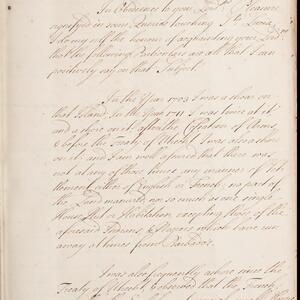 In Obedience to your Lordps Pleasure
signifyed in some Queries touching St. Lucia
I do my self the honour of acquainting your Lordps
that the following Particulars are all that I can
positively say on that Subject.
In the Year 1703 I was a shore on
that Island. In the Year 1711 I was twice at it
and a shore on it after the Cessation of Arms
& before the Treaty of Utrecht I was also a shore
on it: and I am well assured that there was
not at any of those times any manner of Set-
tlement either of English or French, no part of
the Land manured, nor so much as one single
House, Hut or Habitation, excepting those of the
aforesaid Indians & Negroes which have run
away at times from Barbados.
I was also frequently ashore since the
Treaty of Utrecht & observed that the French